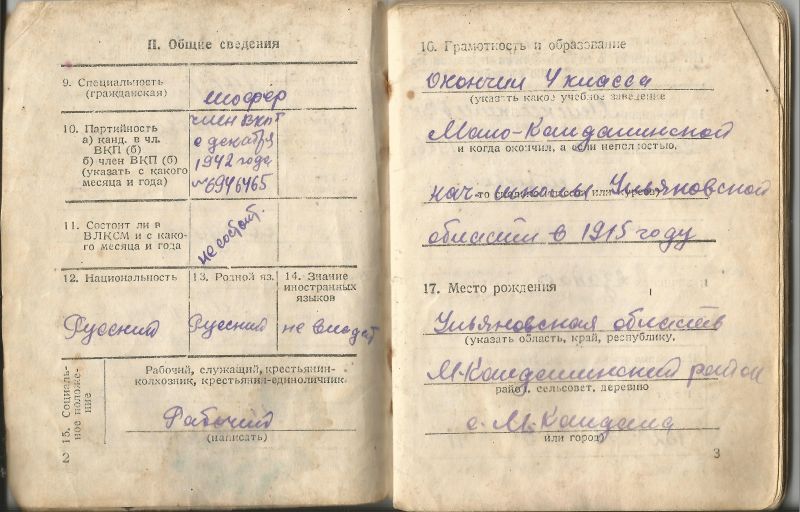 II. Общие сведения
9. Специальность
(гражданская)
шофер
10. Партийность
а) канд. в чл.
ВКП (б)
б) член ВКП (б)
(указать с какого
месяца и года)
член ВКПб
с декабря
1942 года
№6946465
11. Состоит ли в
ВЛКСМ и с како-
го месяца и года
не состоит.
12. Национальность
Русский
13. Родной яз.
Русский
14. Знание
иностранных
языков
не владеет
15. Социаль-
ное положе-
ние
Рабочий, служащий, крестьянин-
колхозник, крестьянин-единоличник
Рабочий
(написать)
2
16. Грамотность и образование
окончил 4 класса
(указать какое учебное заведение
Мало-Кандалинской
и когда окончил, а если неполностью,
нач. школы Ульяновской
то сколько классов или курсов)
области в 1915 году
17. Место рождения
Ульяновская область
(указать область, край, республику,
М-Кандалинский район
район, сельсовет, деревню
с. М. Кандала
или город)
3